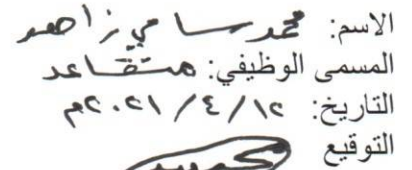 الاسم: محمد سامي زاهد
المسمى الوظيفي: متقاعد
التاريخ: ١٢ / ٤ / ٢٠٢١م
التوقيع